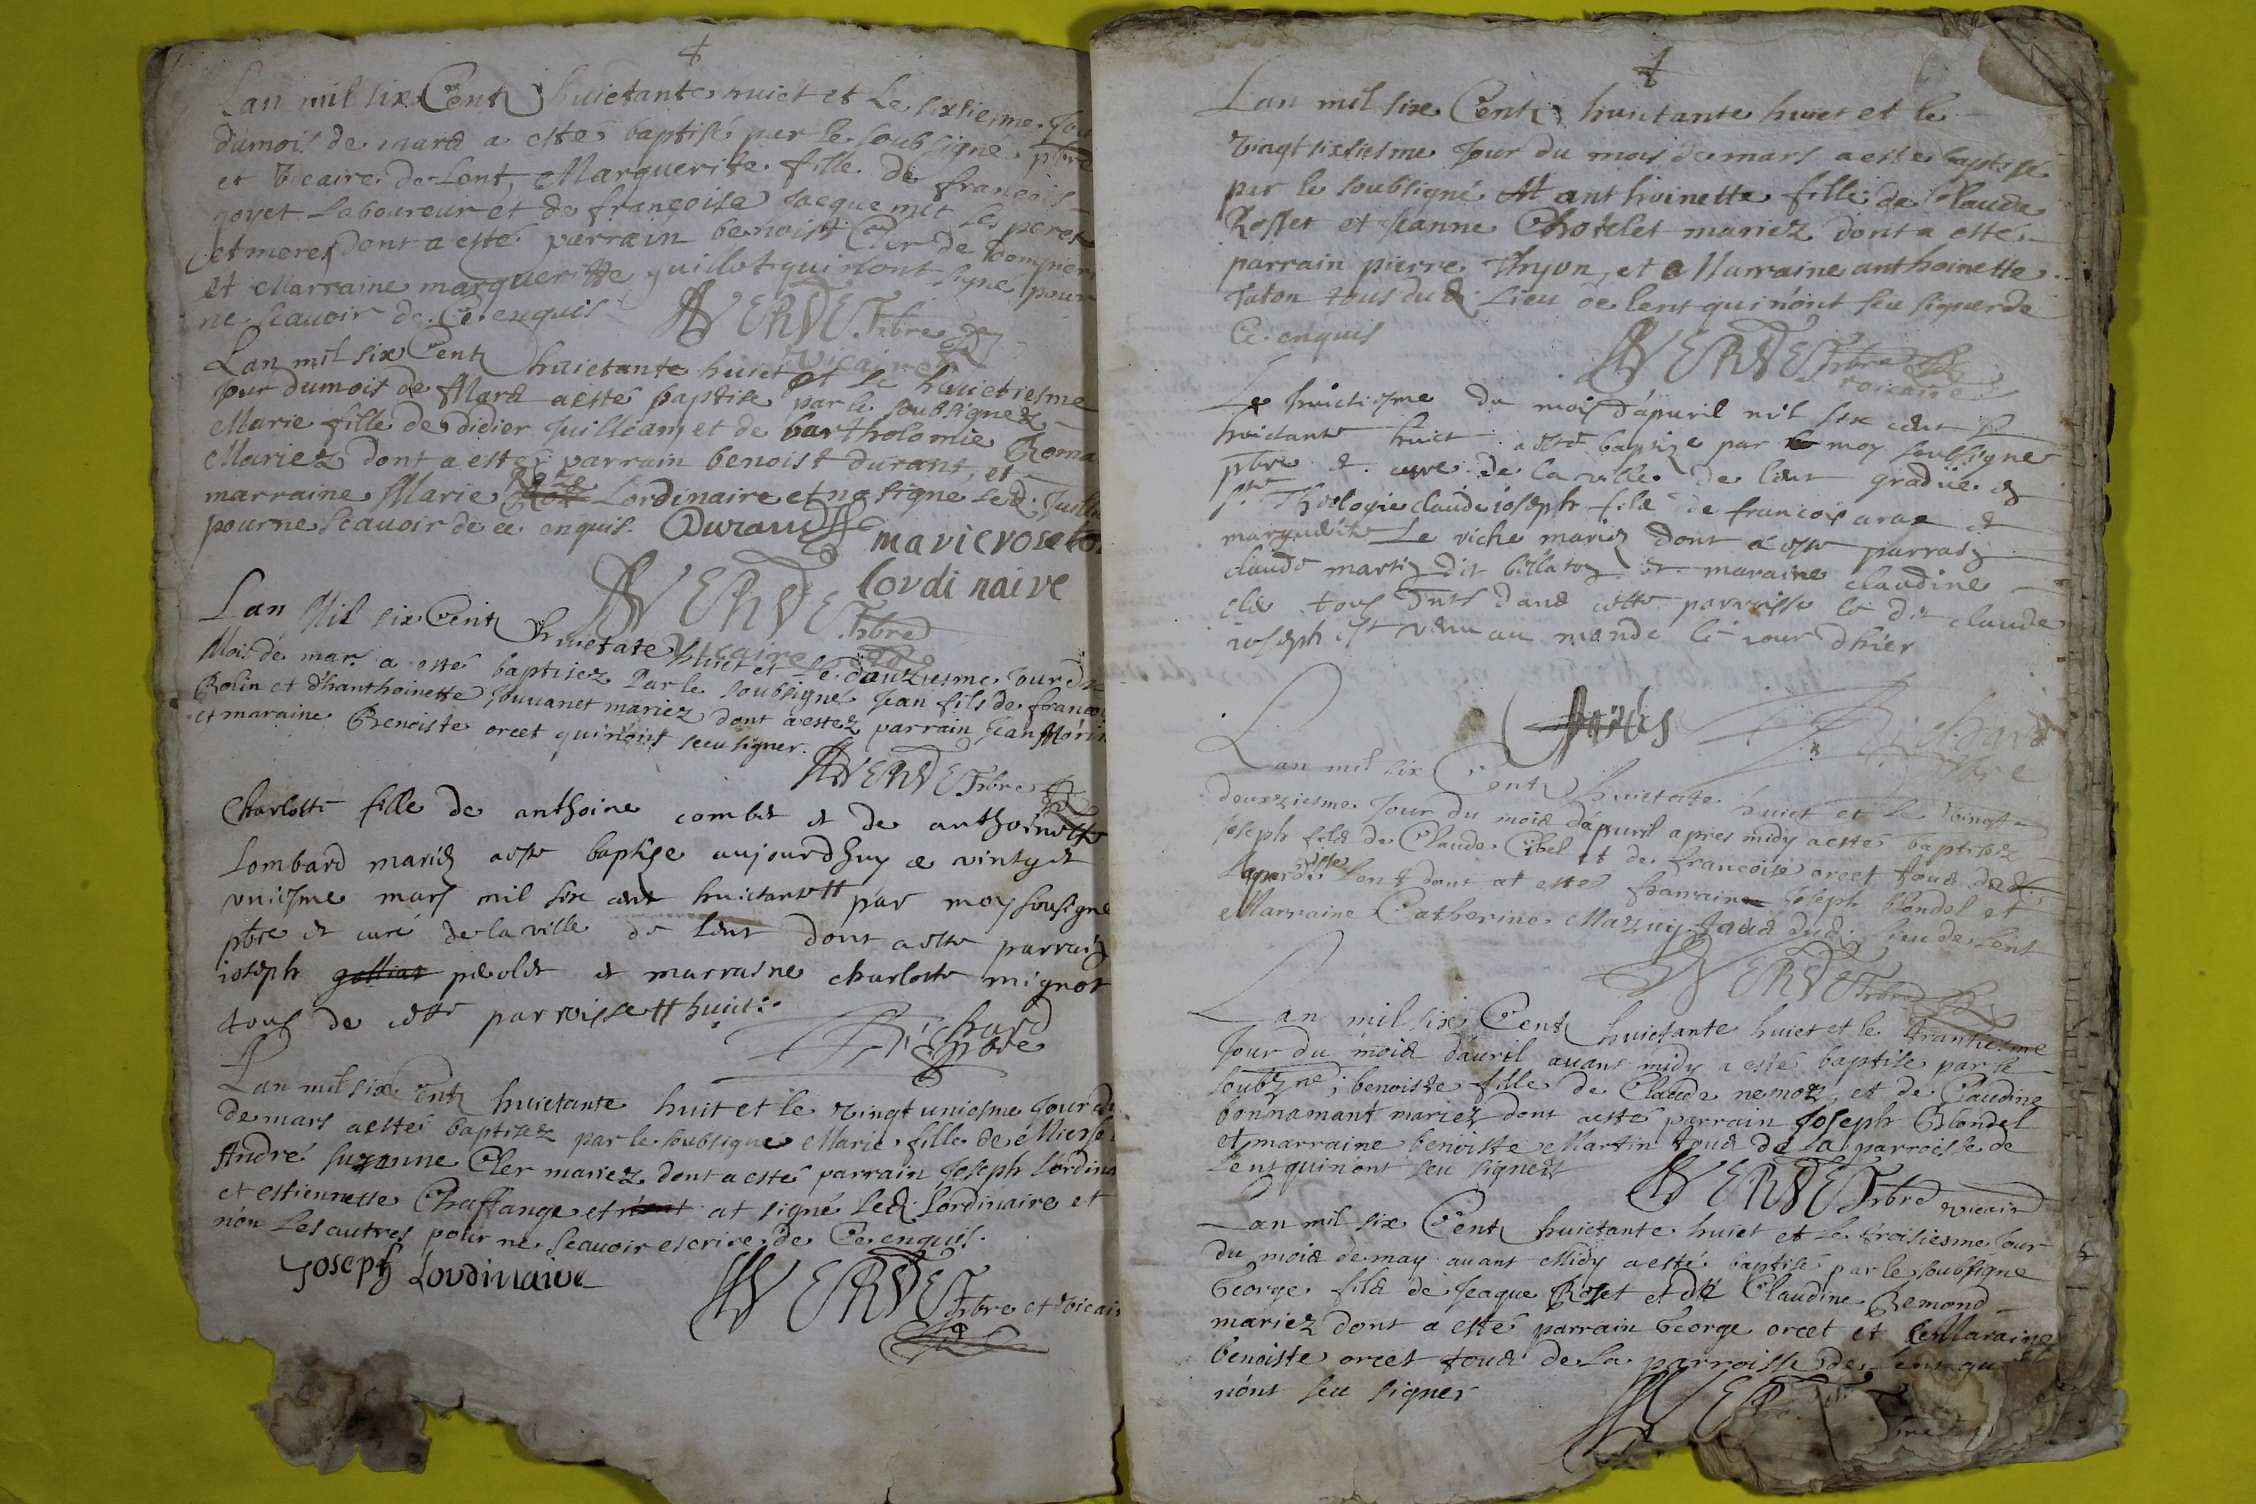 Lan mil six Centz huictante huict et Le sixsiesme Jou
dumois de mars a esté baptisé par le soubsigné pbre
et Vicaire de Lent, Marguerite fille de françois
goyet Laboureur et de françoise Jacquemet les peres
et meres dont a esté parrain benoist Cler de Dompier
et Marraine margueritte guillot qui n'ont signé pour
ne scauoir de Ce enquis
VERDET pbre
vicaire
Lan mil six Centz huictante huict et le huictiesme
Jour dumois de Mars a esté baptise par le soubsignez
Marie fille de didier Juilliam et de bartholomie Roma
Mariez dont a esté parrain benoist durant, et
marraine Marie Rose Lordinaire et na signe Led. Juill
pour ne scauoir de ce enquis. Durand marie rose lo
lordinaire
VERDET pbre
vicaire
Lan Mil six Centz huictate huict et le douziesme Jour du
Mois de mars a esté baptisez Par le soubsigné Jean fils de franco
Rolin et d'hanthoinette Jouuanet mariez dont a estez parrain Jean Morin
et maraine Benoiste orcet qui n'ont sceu signer.
VERDET pbre
Charlotte fille de anthoine combet et de anthoinette
Lombard mariez a este baptise aujourdhuy ce vingt et
vniesme mars mil six cent huictante # par moy sousigne
pbre et curé de la ville de lent dont a este parrain
ioseph galliat peolet et marraine charlotte mignot
tous de cette parroisse # huict
Richard
pbre
Lan mil six Centz huictante huit et le vingt uniesme Jour du
de mars a esté baptisez par le soubsigné Marie fille de
André suzanne Cler mariez dont a esté parrain Joseph Lordina
et estiennette Chaffange et n'ont at signé Led. Lordinaire et
non Les autres pour ne scauoir escrire de Ce enquis.
Joseph Lordinaire
VERDET pbre et vicair
Lan mil six Centz huictante huict et le
vingt sixsiesme Jour du mois de mars a esté baptisé
par le soubsigné anthoinette fille de Claude
Rosset et Jeanne Chatelet mariez dont a esté
parrain pierre Thyon, et Marraine anthoinette
Taton tous dud. Lieu de lent qui n'ont sceu signer de
Ce enquis
VERDET pbre
vicaire
Le huictiesme du mois d'apuril mil six cent
huictante huict a este baptize par moy soubsigne
pbre et cure de la ville de lent gradué en
Theologie claude ioseph fils de francois arax et
marguerite Le riche mariez dont a este parrain
claude martin dit billaton et maraine claudine
cler tous deux dans cette parroisse le dit claude
ioseph est venu au monde le iour d'hier
Richard
pbre
Lan mil six Centz huictate huict et Le Vingt
deuxziesme Jour du mois d'apuril apres midy a esté baptisez
Joseph fils de Claude Cibel et de francoise orcet tous de d.
la parroisse Lent dont at esté parrain Joseph blondel et
Marraine Catherine Mazuy tous dud. lieu de lent
VERDET pbre
Lan mil six Centz huictante huict et le trantiesme
Jour du mois d'auril auant midy a esté baptise par le
soubzne, benoiste fille de Claude nemoz, et de Claudine
bonnamant mariez dont a esté parrain Joseph Blondel
et marraine benoiste Martin tous de la parroisse de
Lent qui n'ont sceu signer
VERDET pbre vicaire
Lan mil six Centz huictante huict et Le troisiesme Jour
du mois de may auant Midy a esté baptisé par le soubsigne
George fils de Jaque Roset et de Claudine Remond
mariez dont a esté parrain George orcet et Maraine
benoiste orcet tous de La parroisse de Lent qui
n'ont sceu signer
VERDET